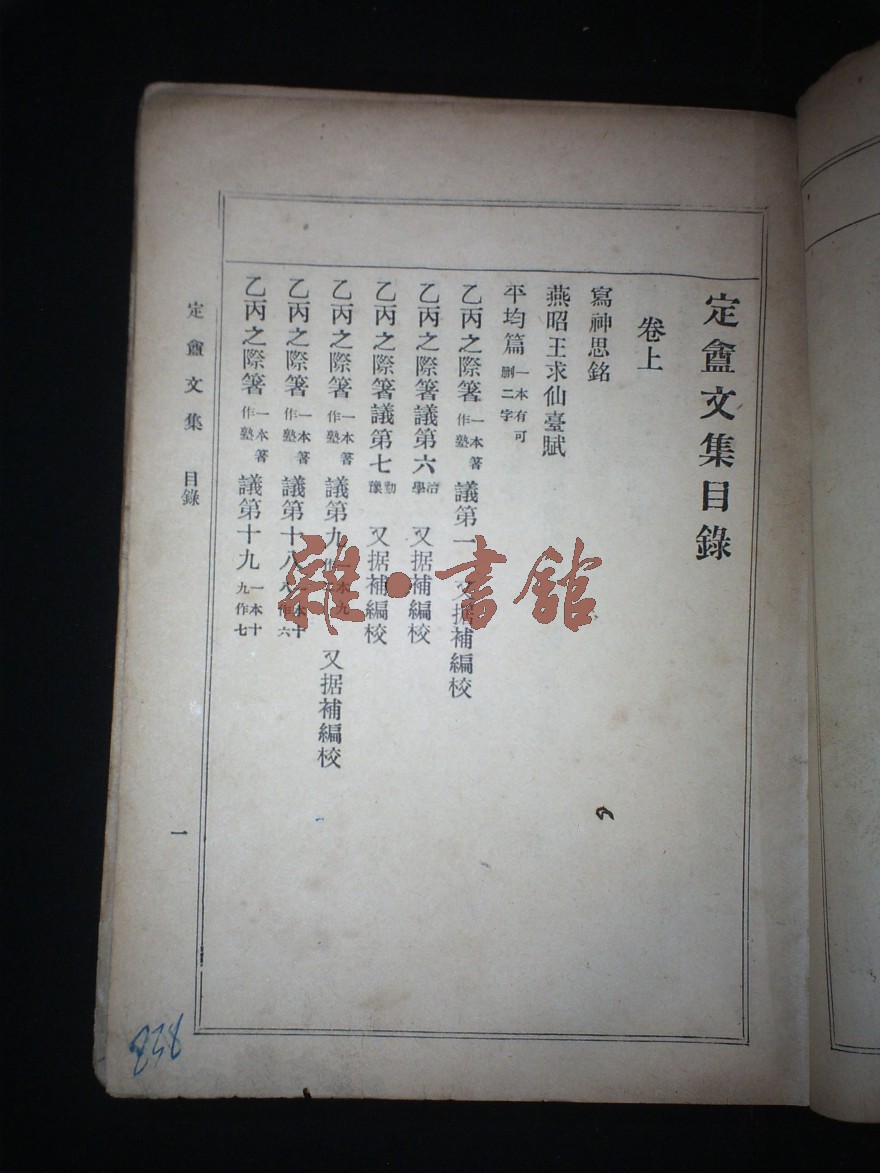 定盦文集目錄
卷上
寫神思銘
燕昭王求仙臺賦
平均篇 一本有可刪二字
乙丙之際箸 一本箸作塾 議第一 又据補編校
乙丙之際箸議第六 治學 又据補編校
乙丙之際箸議第七 勸豫 又据補編校
乙丙之際箸 一本箸作塾 議第九 一本九作 又据補編校
乙丙之際箸 一本箸作塾 議第十八 一本十八作六
乙丙之際箸 一本箸作塾 議第十九 一本十九作七
定盦文集 目錄
一
雜·書館